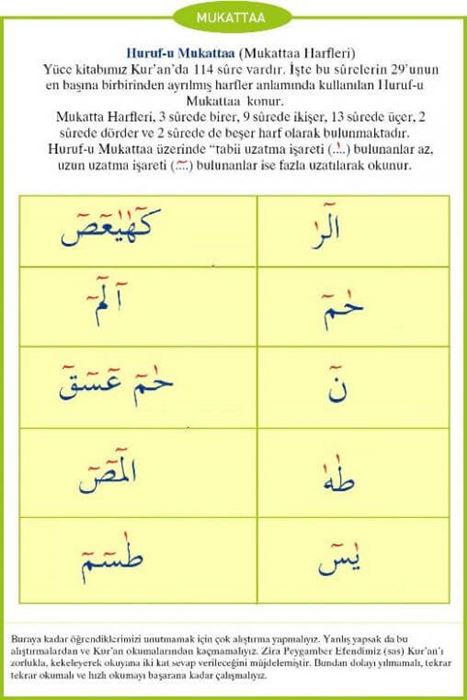 MUKATTAA
Huruf-u Mukattaa (Mukattaa Harfleri)
Yüce kitabımız Kur'an'da 114 sûre vardır. İşte bu sûrelerin 29'unun
en başına birbirinden ayrılmış harfler anlamında kullanılan Huruf-u
Mukattaa konur.
Mukatta Harfleri, 3 sûrede birer, 9 sûrede ikişer, 13 sûrede üçer, 2
sûrede dörder ve 2 sûrede de beşer harf olarak bulunmaktadır.
Huruf-u Mukattaa üzerinde "tabii uzatma işareti (..ٰ..) bulunanlar az,
uzun uzatma işareti (..ٓ..) bulunanlar ise fazla uzatılarak okunur.
كٓهٰيٰعٓصٓ الٓرٰ
آلٓمٓ حٰمٓ
حٰمٓ عٓسٓقٓ نٓ
الٓمٓصٓ طٰهٰ
طٰسٓمٓ يٰسٓ
Buraya kadar öğrendiklerimizi unutmamak için çok alıştırma yapmalıyız. Yanlış yapsak da bu
alıştırmalardan ve Kur'an okumalarından kaçmamalıyız. Zira Peygamber Efendimiz (sas) Kur'an'ı
zorlukla, kekeleyerek okuyana iki kat sevap verileceğini müjdelemiştir. Bundan dolayı yılmamalı, tekrar
tekrar okumalı ve hızlı okumayı başarana kadar çalışmalıyız.